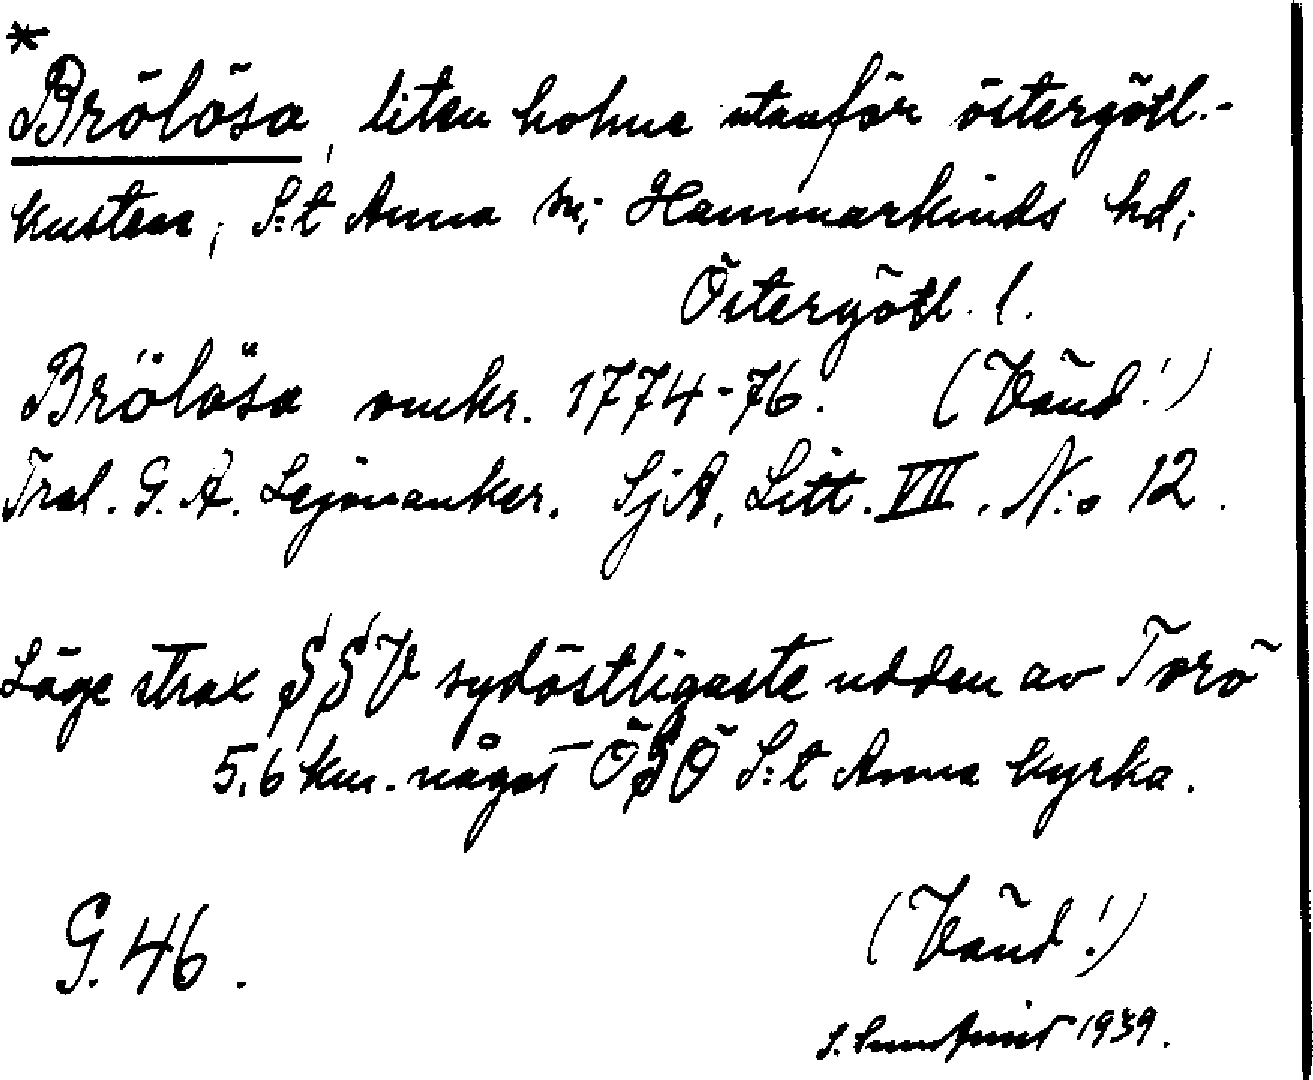 *
Brölösa, liten holme utanför östergötl.-
kusten, S:t Anna sn; Hammarkinds hd;
Östergötl. l.
Brölösa omkr. 1774-76. (Vänd!)
Trol. G. A. Lejonanker. SjA, Litt. VII. N:o 12.
Läge strax SSV sydöstligaste udden av Torö
5,6 km. något ÖSÖ S:t Anna kyrka.
G. 46.
(Vänd!)
S. 1939.